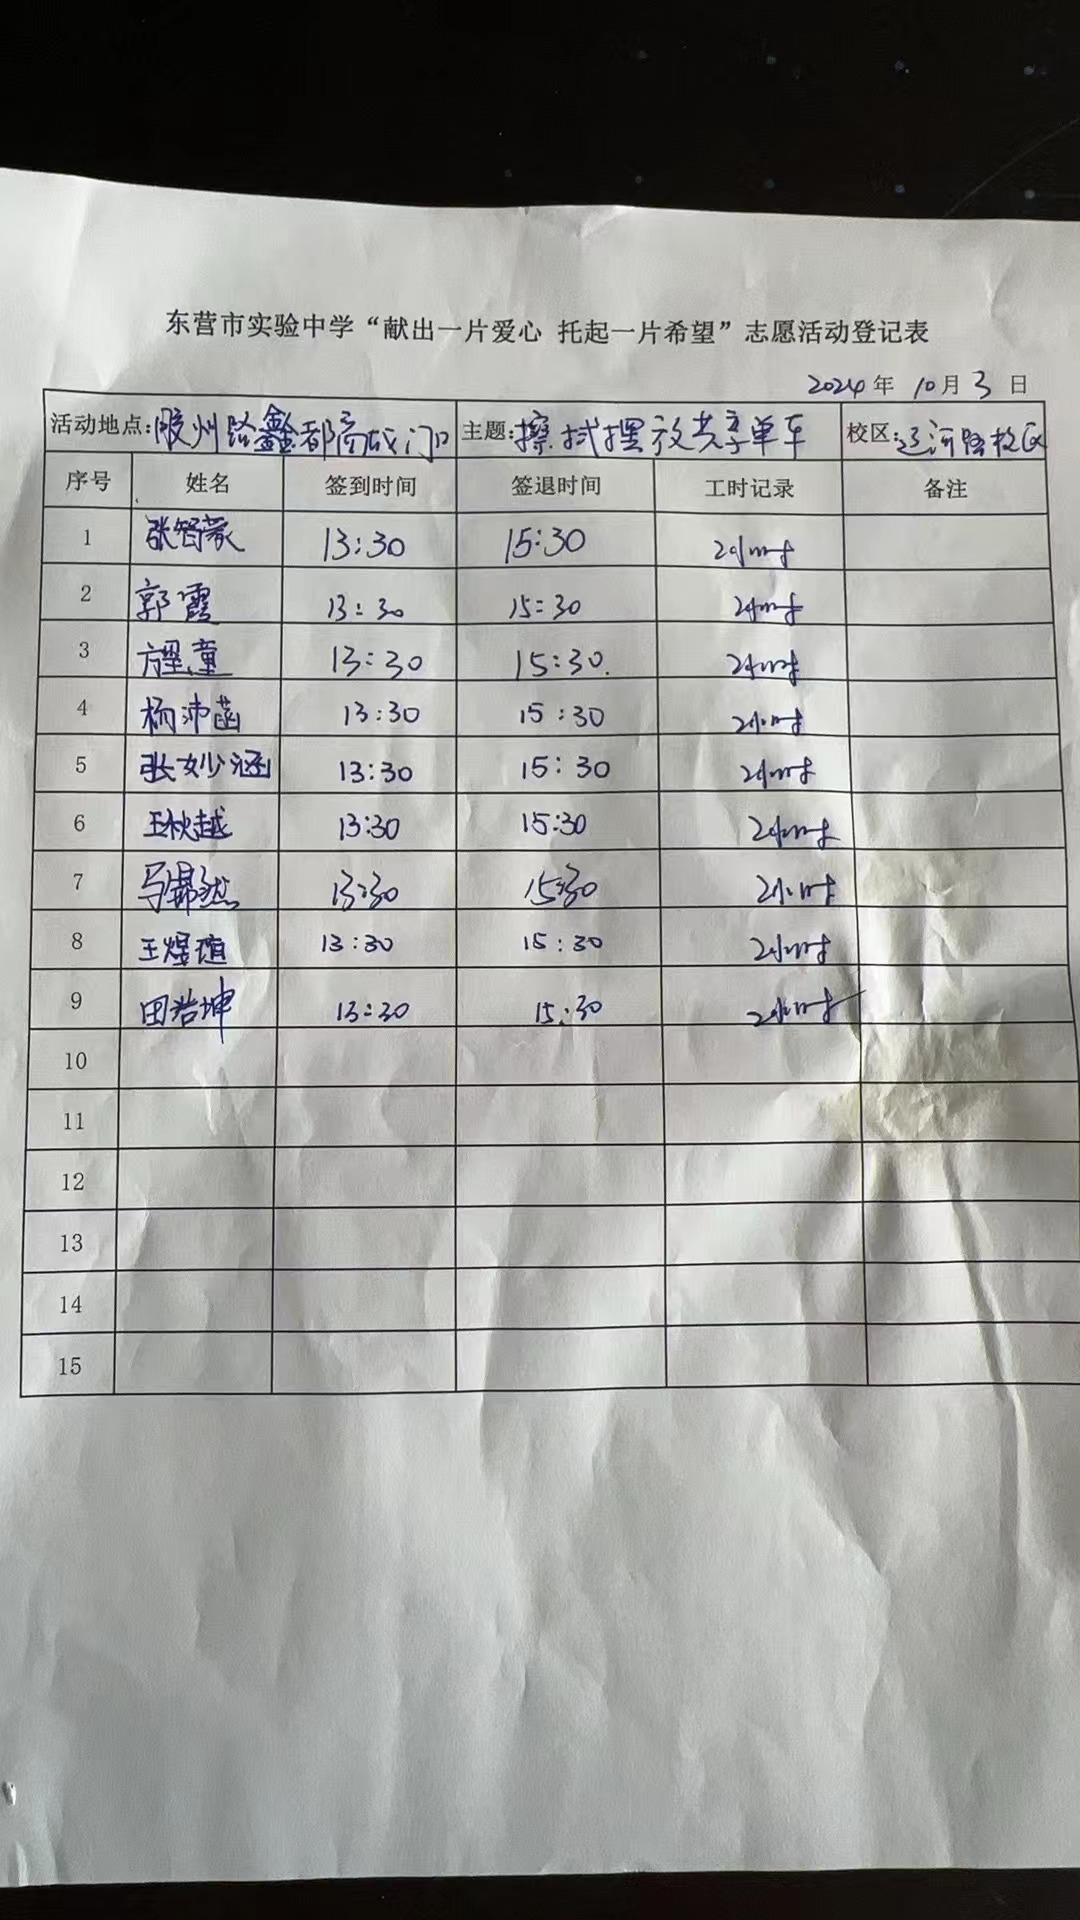 东营市实验中学“献出一片爱心 托起一片希望”志愿活动登记表
2024年 10月 3 日
活动地点:胶州路鑫都商城门口 主题:擦拭摆放共享单车 校区:辽河路校区
序号 姓名 签到时间 签退时间 工时记录 备注
1 张智 13:30 15:30 2小时
2 郭霞 13:30 15:30 2小时
3 童 13:30 15:30. 2小时
4 杨沛菡 13:30 15:30 2小时
5 张妙涵 13:30 15:30 2小时
6 王秋越 13:30 15:30 2小时
7 马锦然 13:30 15:30 2小时
8 王煜瑄 13:30 15:30 2小时
9 田浩坤 13:30 15:30 2小时
10
11
12
13
14
15